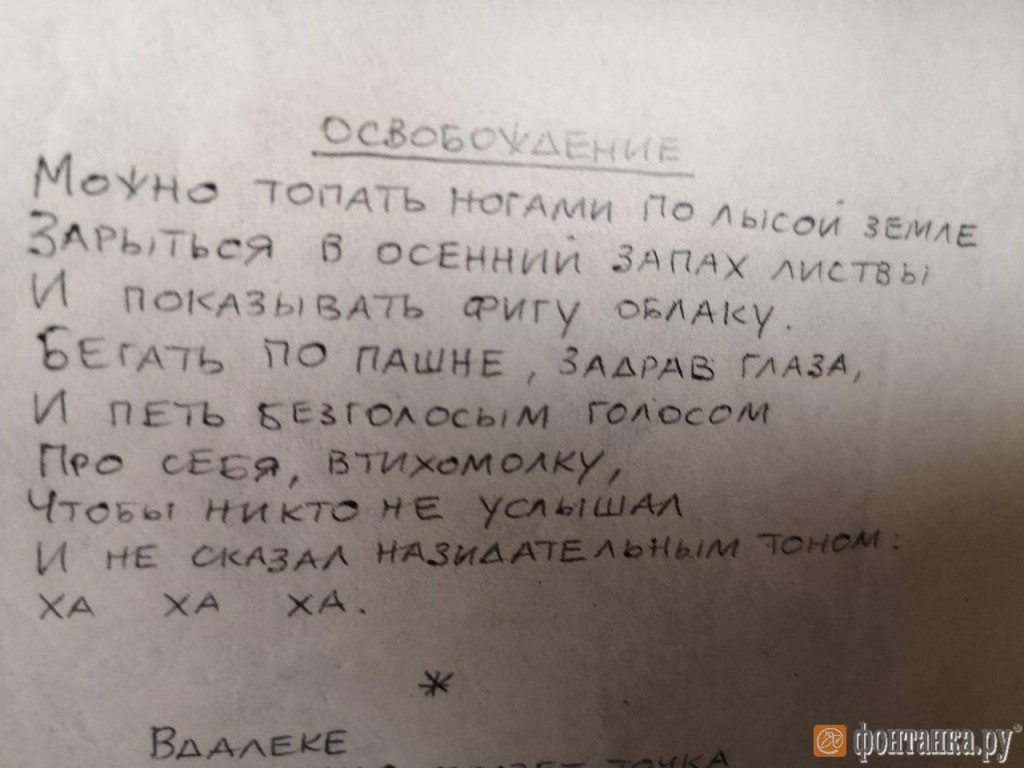 ОСВОБОЖДЕНИЕ
МОЖНО ТОПАТЬ НОГАМИ ПО ЛЫСОЙ ЗЕМЛЕ
ЗАРЫТЬСЯ В ОСЕННИЙ ЗАПАХ ЛИСТВЫ
И ПОКАЗЫВАТЬ ФИГУ ОБЛАКУ.
БЕГАТЬ ПО ПАШНЕ, ЗАДРАВ ГЛАЗА,
И ПЕТЬ БЕЗГОЛОСЫМ ГОЛОСОМ
ПРО СЕБЯ, ВТИХОМОЛКУ,
ЧТОБЫ НИКТО НЕ УСЛЫШАЛ
И НЕ СКАЗАЛ НАЗИДАТЕЛЬНЫМ ТОНОМ:
ХА ХА ХА.
*
ВДАЛЕКЕ
ТОЧКА
фонтанка.ру